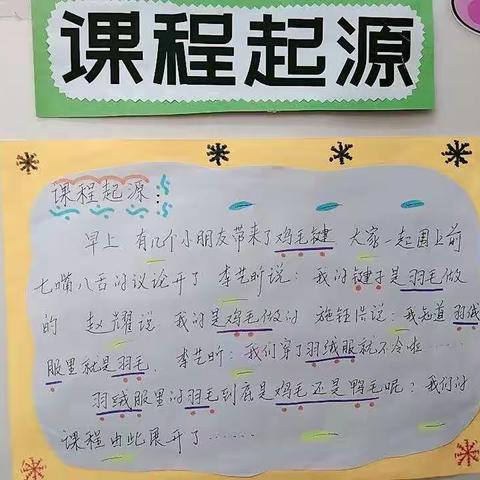 课程起源
课程起源：
早上 有几个小朋友带来了鸡毛键 大家一起围上前
七嘴八舌的议论开了 李艺昕说：我的键子是羽毛做
的 赵耀说 我的是鸡毛做的 施钰浩说：我知道羽绒
服里就是羽毛、李艺昕：我们穿了羽绒服就不冷啦……
羽绒服里的羽毛到底是鸡毛还是鸭毛呢？我们的
课程由此展开了……